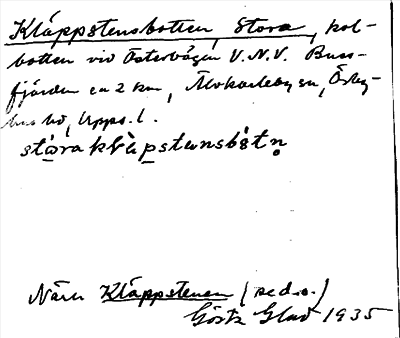 Kläppstensbotten, Stora, kol-
botten vid Österbågen V.N.V. Buss-
fjärden ca 2 km, Älvkarleby sn, Örby-
hus hd, Upps. l.
stora kläpstensbotn
Nära Kläppstenen (se d.o.)
Gösta Glad 1935